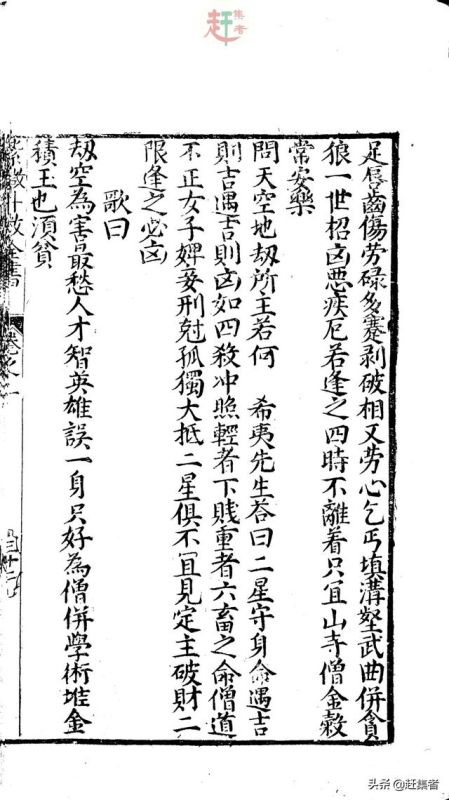 赶
集者
足唇齒傷劳碌多蹇剥破相又劳心乞丐填溝壑武曲併貪
狼一世招凶悪疾厄若逢之四時不離着只冝山寺僧金榖
常安樂
問天空地刼所主若何　希夷先生荅曰二星守身命遇吉
則吉遇吉則凶如四殺冲照輕者下賤重者六畜之命僧道
不正女子婢妾刑尅孤獨大抵二星俱不冝見定主破財二
限逢之必凶
歌曰
刼空為害最愁人才智英雄誤一身只好為僧併學術堆金
積玉也須貧
卷之一
头条 @赶集者